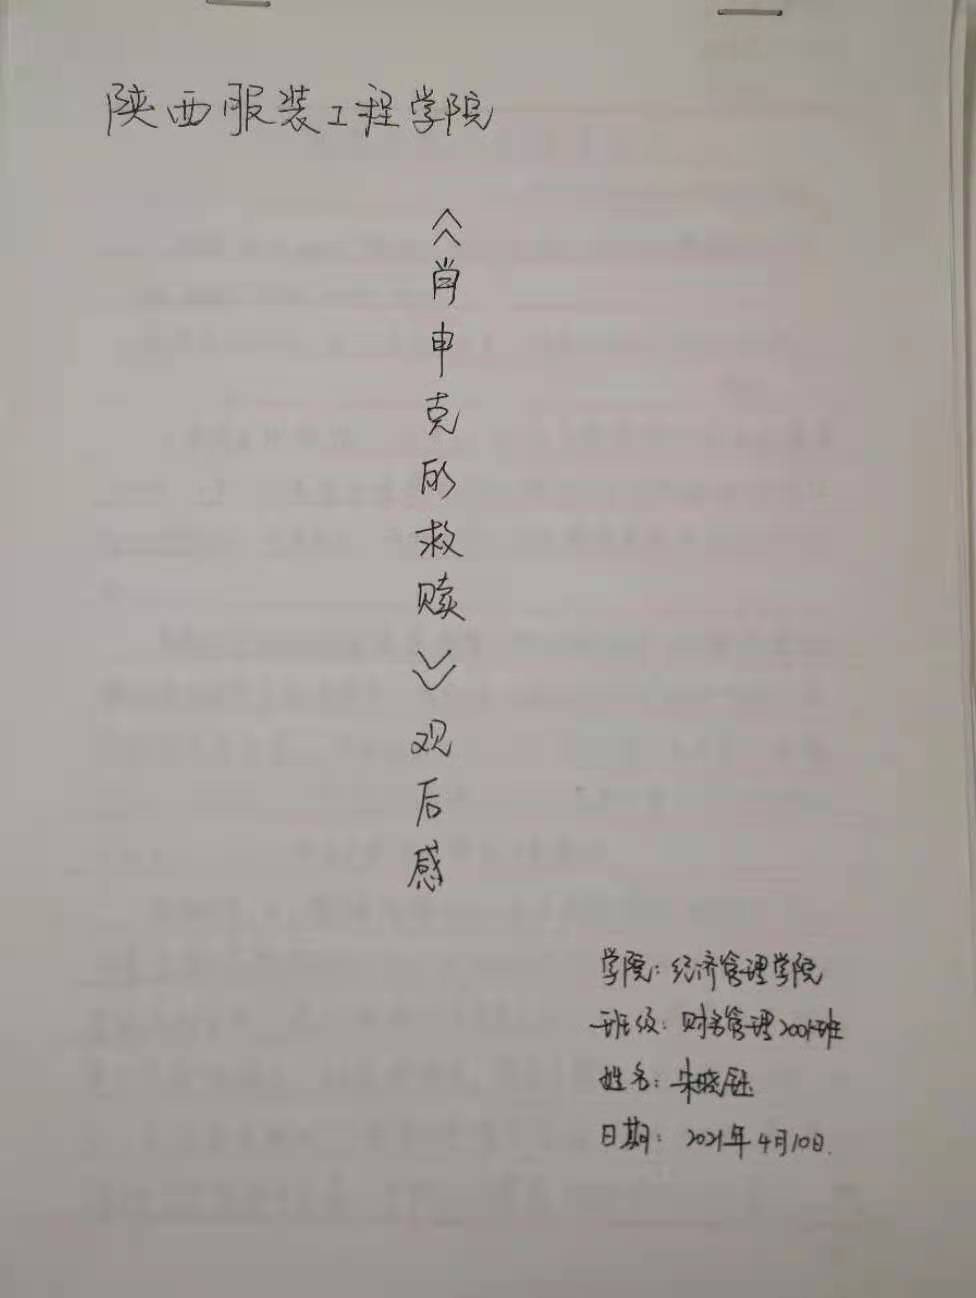 陕西服装工程学院
《肖申克的救赎》观后感
学院：经济管理学院
班级：财务管理2001班
姓名：宋晓钰
日期：2021年4月10日.